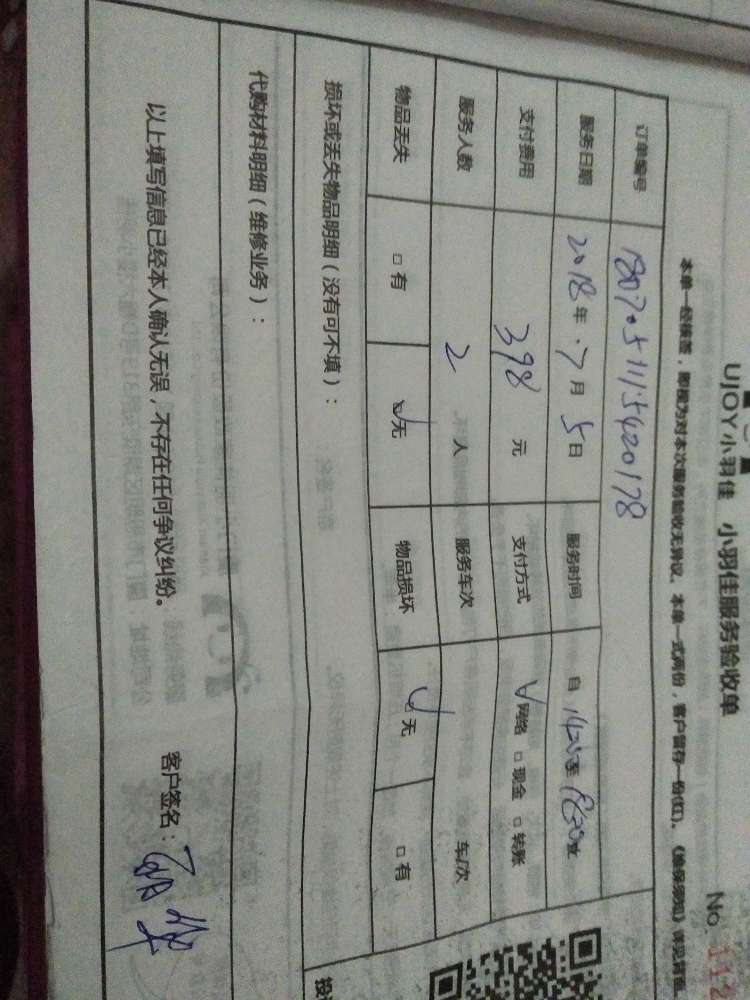 UJOY小羽佳 小羽佳服务验收单
No 112
本单一经接签，即视为对本次服务验收无异议。本单一式两份，客户留存一份(红)。
订单编号 1807051115420178
服务日期 2018年7月5日 服务时间 自 至 止
支付费用 398元 支付方式 √网络 □现金 □转账
服务人数 2人 服务车次 车/次
物品丢失 □有 √无 物品损坏 √无 □有
损坏或丢失物品明细（没有可不填）：
代购材料明细（维修业务）：
以上填写信息已经本人确认无误，不存在任何争议纠纷。 客户签名：